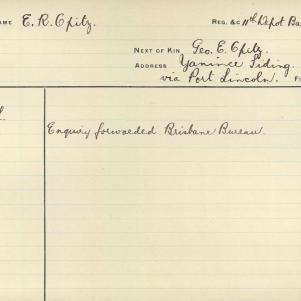 NAME E. R. Opitz. REG. &C 11th Depot Ba
NEXT OF KIN Geo. E. Opitz.
ADDRESS Yaninee Siding.
via Port Lincoln.
Enquiry forwarded Brisbane Bureau.